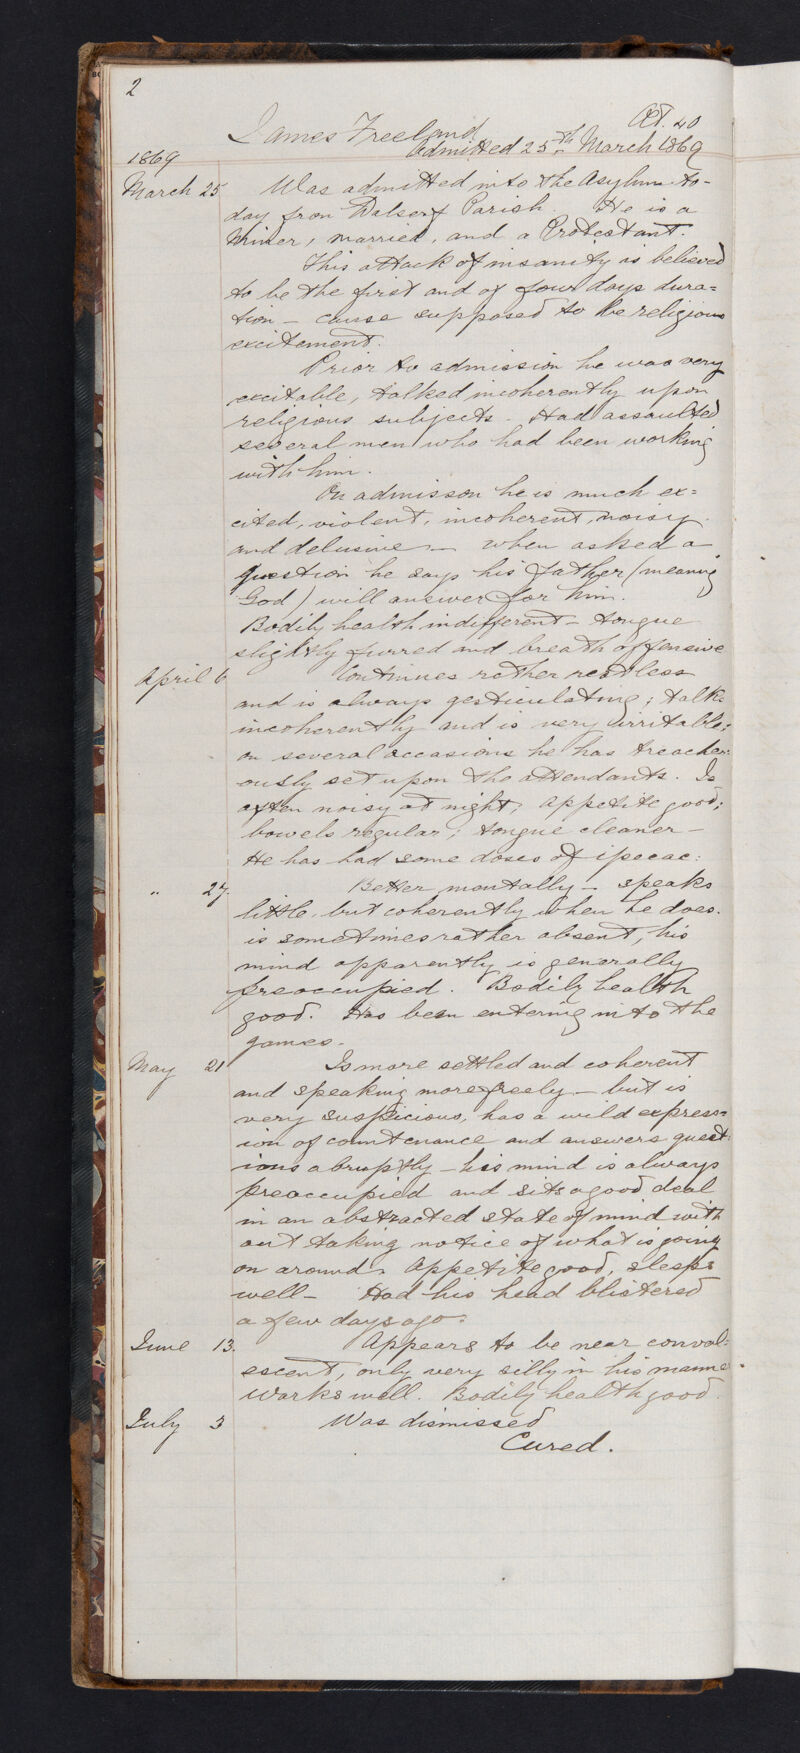 2
James Freeland Æt. 40
Admitted 25th March 1869
1869
March 25 Was admitted into the Asylum to-
day from Dalserf Parish. He is a
Miner, married, and a Protestant.
This attack of insanity is believed
to be the first and of four days dura=
tion – cause supposed to be religious
excitement.
Prior to admission he was very
excitable, talked incoherently upon
religious subjects – Had assaulted
several men who had been working
with him.
On admisson he is much ex=
cited, violent, incoherent, noisy
and delusive – when asked a
question he says his father (meaning
God) will answer for him.
Bodily health indifferent – tongue
slightly furred and breath offensive
April 6 Continues rather restless
and is always gesticulating; talks
incoherently and is very irritable;
on several occasions he has treacher=
ously set upon the attendants. Is
often noisy at night, appetite good;
bowels regular; tongue cleaner –
He has had some doses of ipecac:
" 27. Better mentally – speaks
little, but coherently when he does.
is sometimes rather absent, his
mind apparently is generally
preoccupied. Bodily health
good. Has been entering into the
games.
May 21 Is more settled and coherent
and speaking more freely – but is
very suspicious, has a wild express=
ion of countenance and answers quest=
ions abruptly – his mind is always
preoccupied and sits a good deal
in an abstracted state of mind with
out taking notice of what is going
on around. Appetite good, sleeps
well – Had his head blistered
a few days ago.
June 13. Appears to be near conval=
escent, only very silly in his manner.
Works well. Bodily health good.
July 3 Was dismissed
Cured.